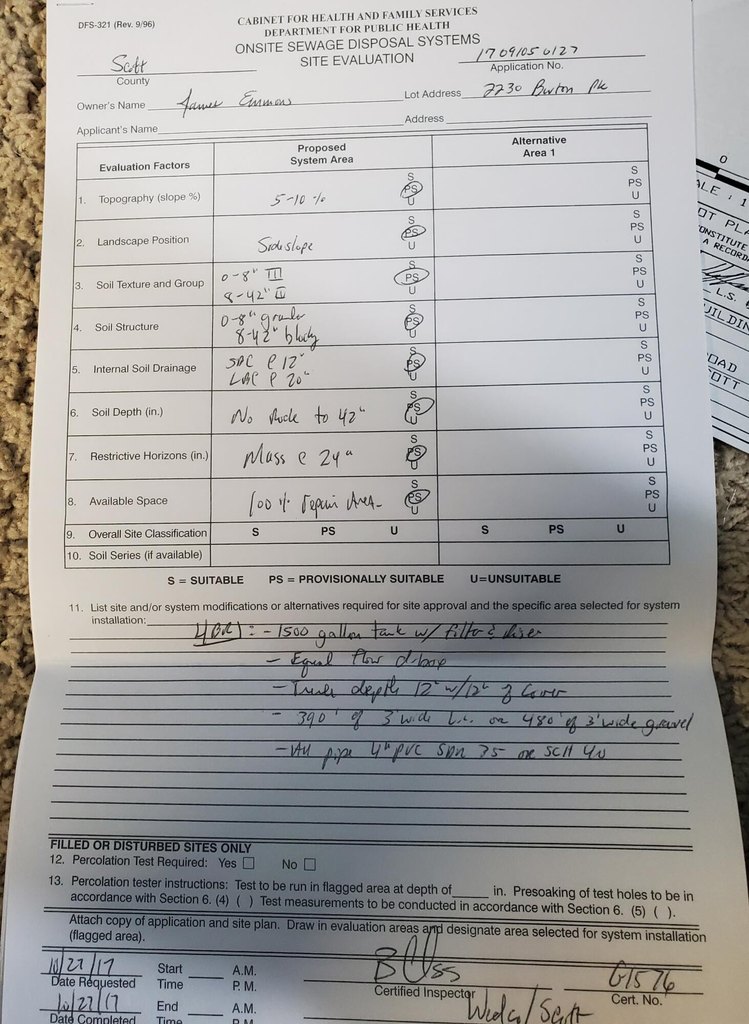 DFS-321 (Rev. 9/96)
CABINET FOR HEALTH AND FAMILY SERVICES
DEPARTMENT FOR PUBLIC HEALTH
ONSITE SEWAGE DISPOSAL SYSTEMS
SITE EVALUATION
Scott
County
Application No.
Owner's Name James Emmons
Lot Address 2230 Burton Pk
Applicant's Name
Address
Evaluation Factors
Proposed
System Area
Alternative
Area 1
1. Topography (slope %) 5-10 % S PS U S PS U
2. Landscape Position Sideslope S PS U S PS U
3. Soil Texture and Group 0-8" III S PS U S PS U
8-42" II
4. Soil Structure 0-8" granular S PS U S PS U
8-42" blocky
5. Internal Soil Drainage SDC @ 12" S PS U S PS U
LDC @ 20"
6. Soil Depth (in.) No Rock to 42" S PS U S PS U
7. Restrictive Horizons (in.) Mass @ 24" S PS U S PS U
8. Available Space 100 % repair Area S PS U S PS U
9. Overall Site Classification S PS U S PS U
10. Soil Series (if available)
S = SUITABLE PS = PROVISIONALLY SUITABLE U=UNSUITABLE
11. List site and/or system modifications or alternatives required for site approval and the specific area selected for system
installation:
4BR: - 1500 gallon tank w/ filter & Riser
- Equal flow d-box
- Trench depth 12" w/12" of Cover
- 390' of 3' wide L.C. or 480' of 3' wide gravel
- All pipe 4" PVC SDR 35 or SCH 40
FILLED OR DISTURBED SITES ONLY
12. Percolation Test Required: Yes No
13. Percolation tester instructions: Test to be run in flagged area at depth of in. Presoaking of test holes to be in
accordance with Section 6. (4) ( ) Test measurements to be conducted in accordance with Section 6. (5) ( ).
Attach copy of application and site plan. Draw in evaluation areas and designate area selected for system installation
(flagged area).
10/27/17
Date Requested
Start
Time
A.M.
P.M.
Certified Inspector
G1576
Cert. No.
10/27/17
Date Completed
End
Time
A.M.
P.M.
Wedco/Scott
0
ALE : 1
OT PLA
ONSTITUTE
A RECORD
L.S.
UILDIN
OAD
OTT